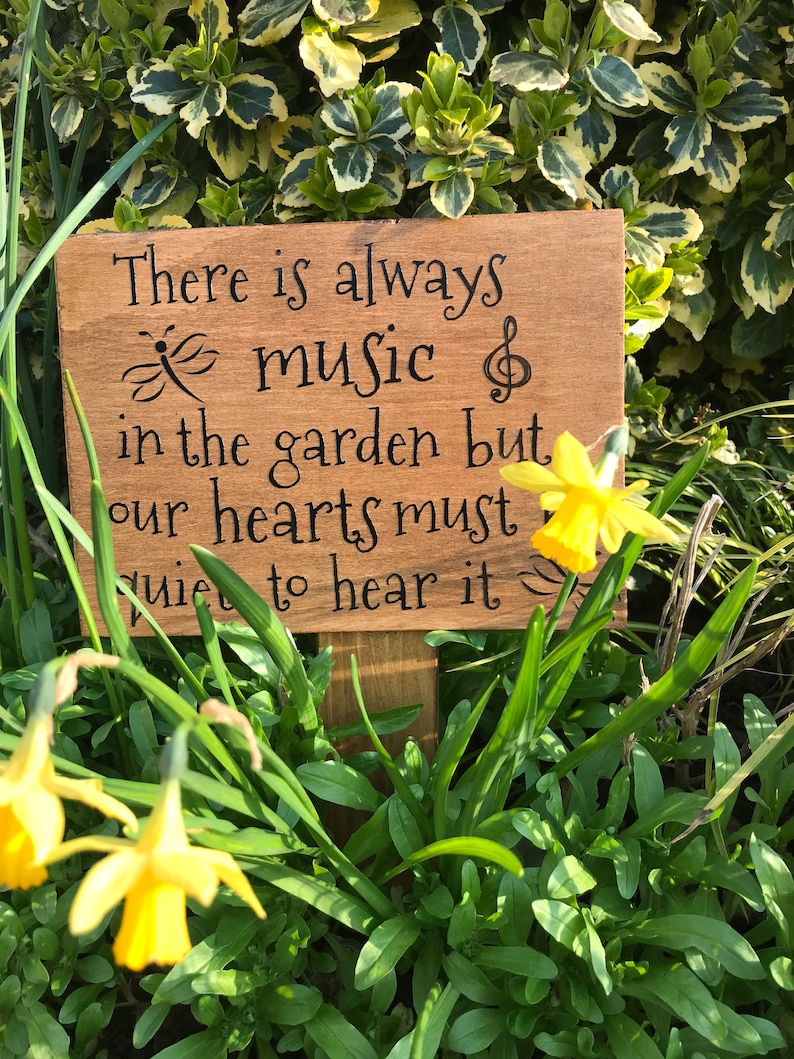 There is always
music
in the garden but
our hearts must
quiet to hear it